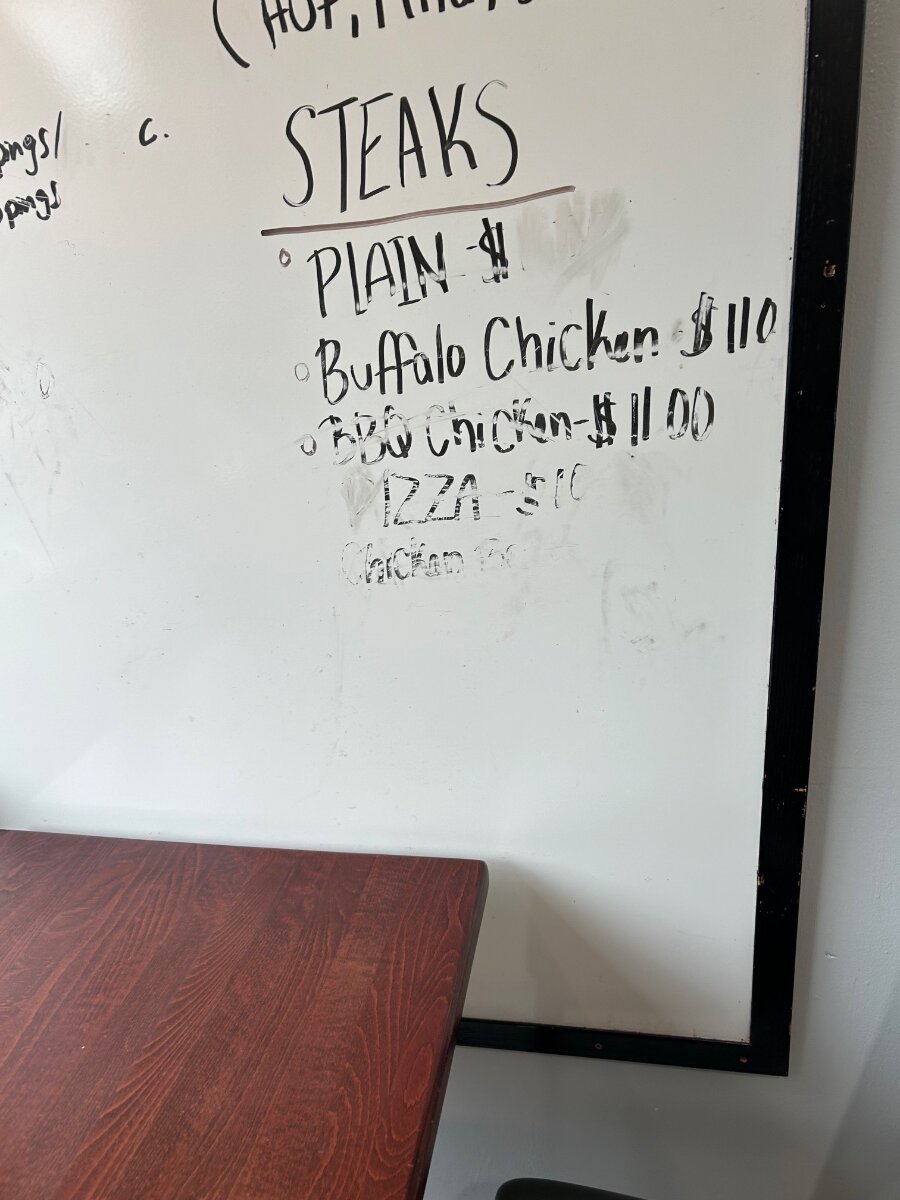 (HOT,
pings/ c.
STEAKS
PLAIN - $
Buffalo Chicken - $110
BBQ Chicken - $11 00
IZZA - $1
Chicken